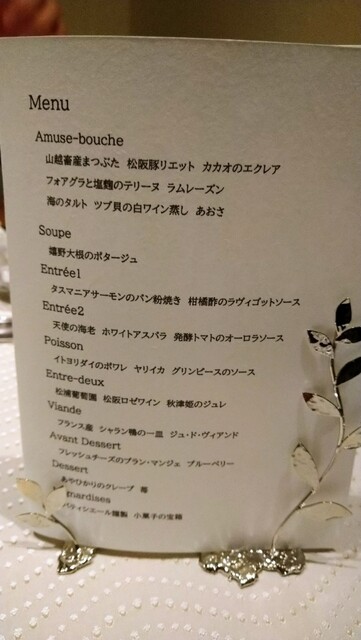 Menu
Amuse-bouche
山越畜産まつぶた 松阪豚リエット カカオのエクレア
フォアグラと塩麹のテリーヌ ラムレーズン
海のタルト ツブ貝の白ワイン蒸し あおさ
Soupe
嬉野大根のポタージュ
Entrée1
タスマニアサーモンのパン粉焼き 柑橘酢のラヴィゴットソース
Entrée2
天使の海老 ホワイトアスパラ 発酵トマトのオーロラソース
Poisson
イトヨリダイのポワレ ヤリイカ グリンピースのソース
Entre-deux
松浦葡萄園 松阪ロゼワイン 秋津姫のジュレ
Viande
フランス産 シャラン鴨の一皿 ジュ・ド・ヴィアンド
Avant Dessert
フレッシュチーズのブラン・マンジェ ブルーベリー
Dessert
あやひかりのクレープ 苺
nardises
パティシエール 小菓子の宝箱